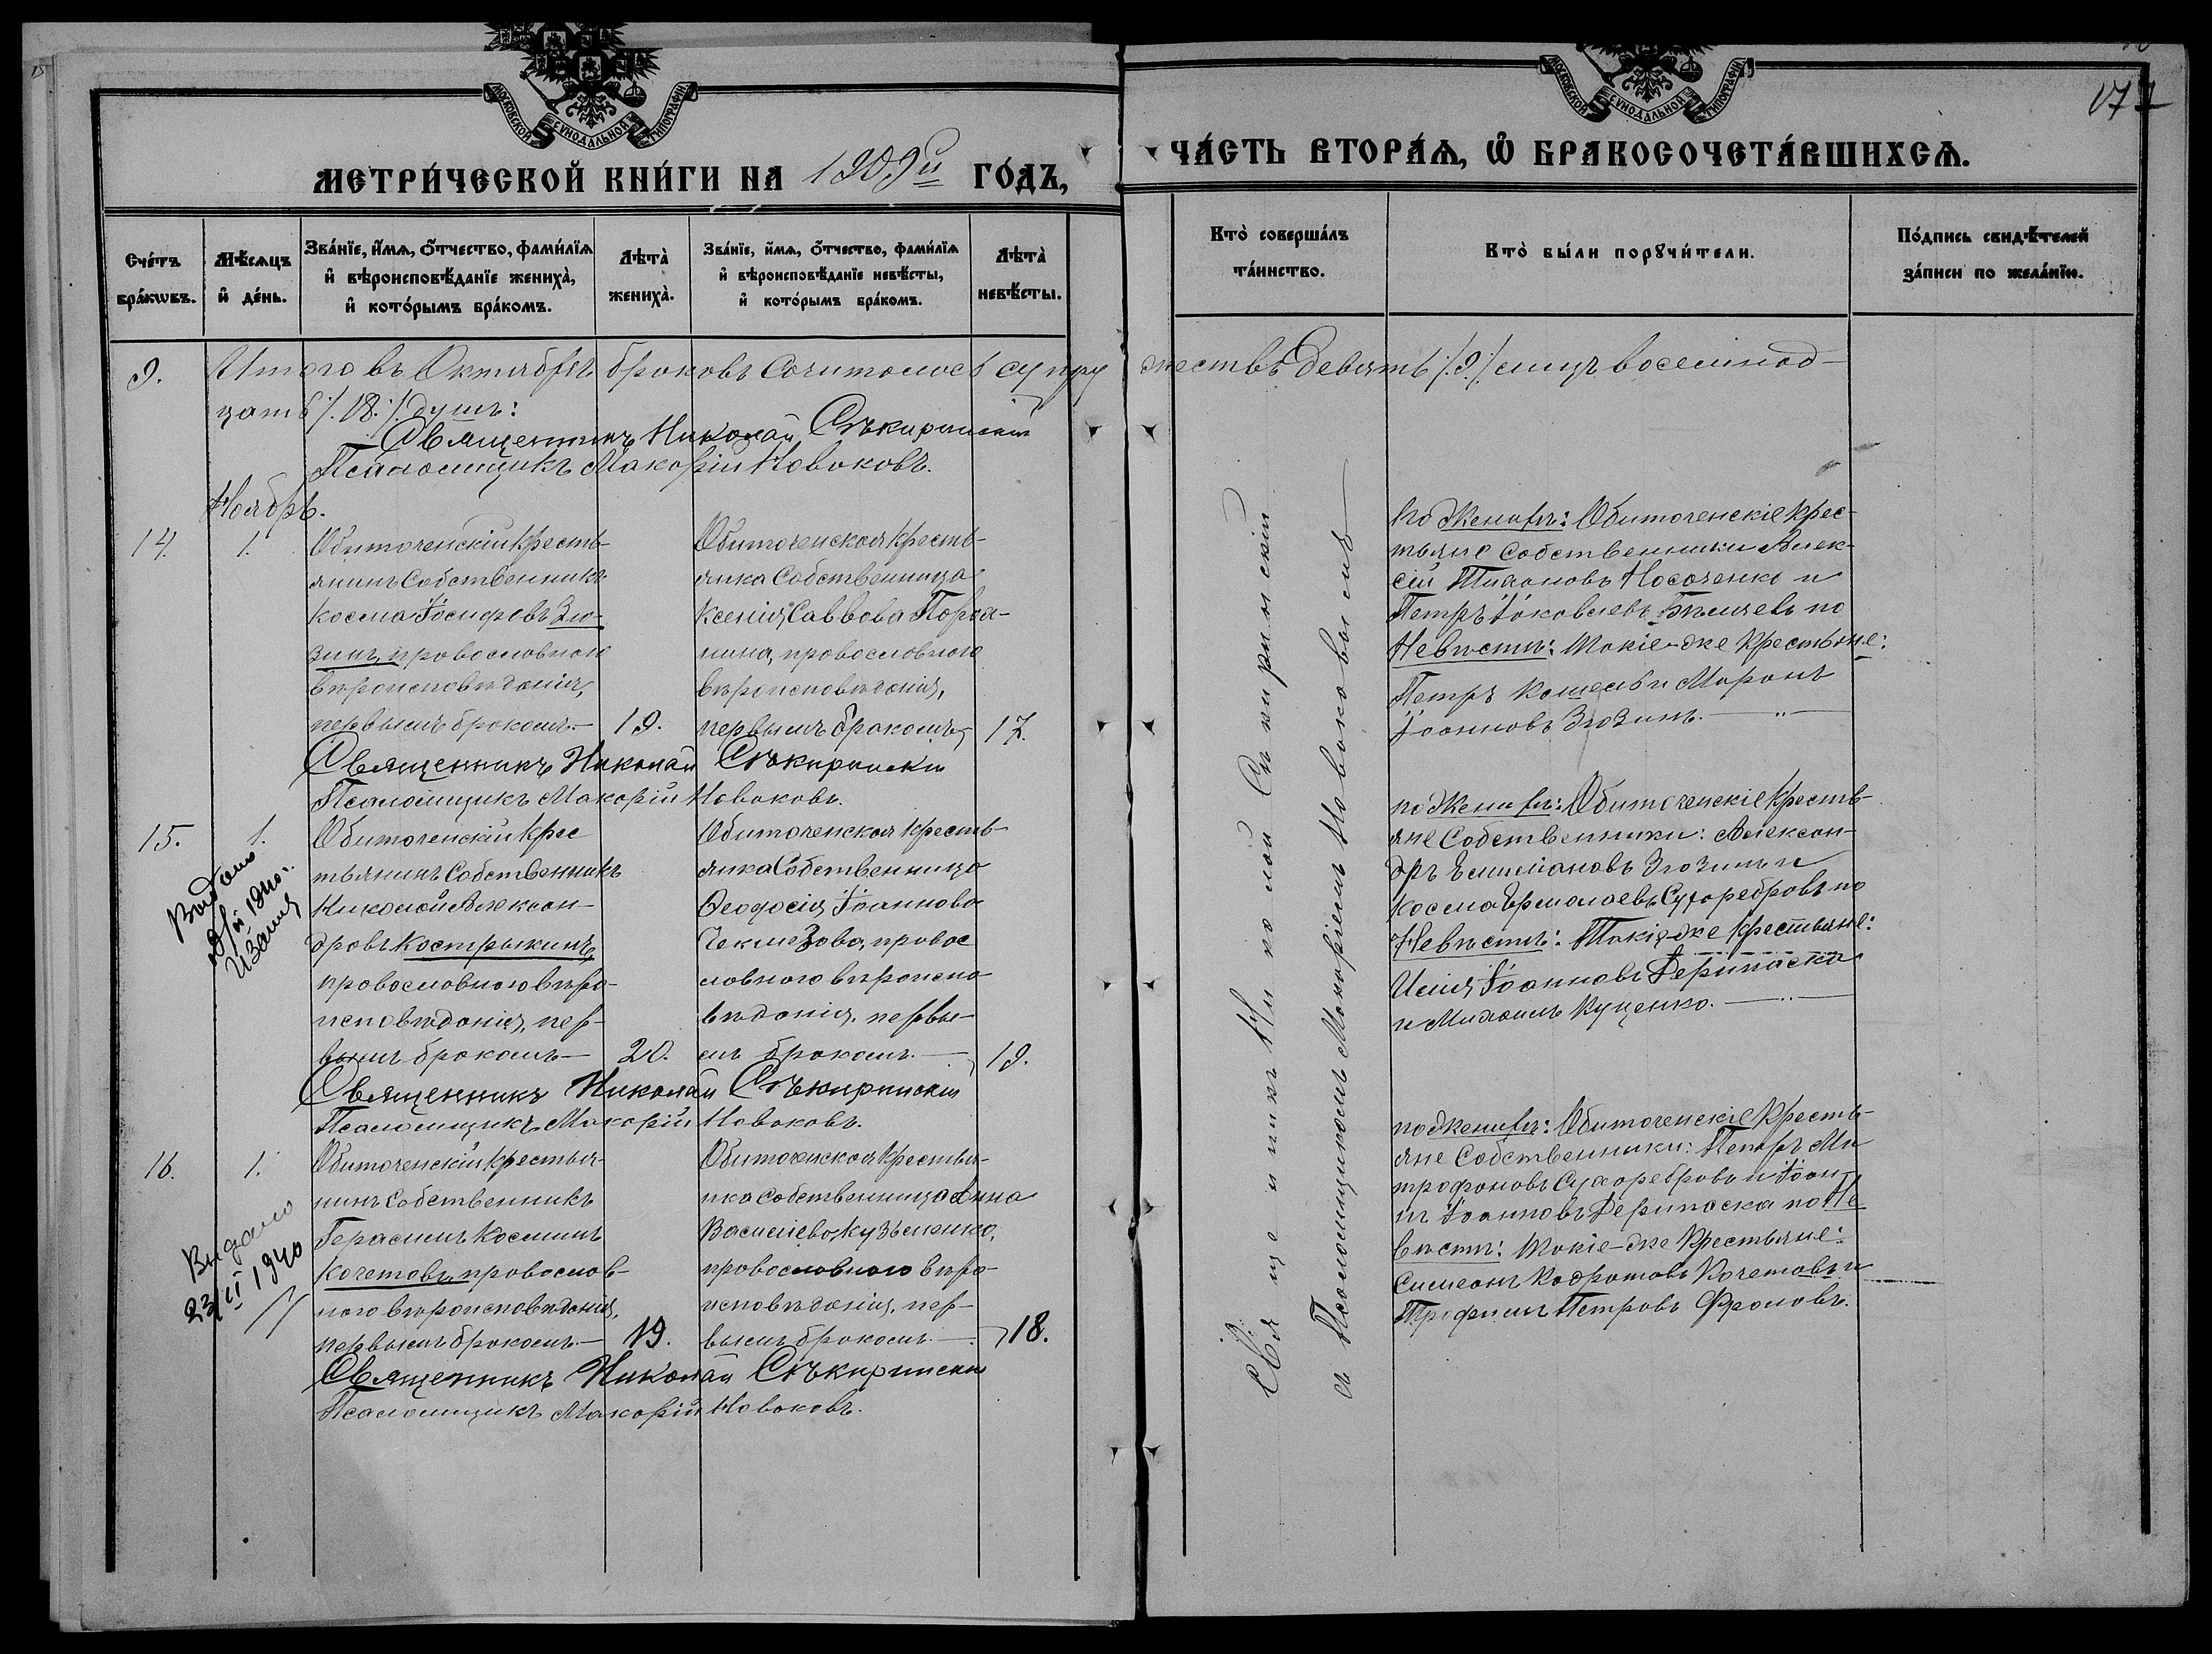 МОСКОВСКОЙ СУНОДАЛЬНОЙ ТИПОГРАФІИ
МОСКОВСКОЙ СУНОДАЛЬНОЙ ТИПОГРАФІИ
МЕТРИ́ЧЕСКОЙ КНИ́ГИ НА 1909й ГО́ДЪ,
ЧА́СТЬ ВТОРА́Ѧ, Ѡ҆ БРАКОСОЧЕТА́ВШИХСѦ.
Сче́тъ бра́кѡвъ.
Мѣ́сѧцъ и҆ де́нь.
Зва́нїе, и҆́мѧ, ѻ҆́тчество, фами́лїѧ и҆ вѣроисповѣ́данїе жениха̀, и҆ кото́рымъ бра́комъ.
Лѣта̀ жениха̀.
Зва́нїе, и҆́мѧ, ѻ҆́тчество, фами́лїѧ и҆ вѣроисповѣ́данїе невѣ́сты, и҆ кото́рымъ бра́комъ.
Лѣта̀ невѣ́сты.
Кто̀ соверша́лъ та́инство.
Кто̀ бы́ли порꙋчи́тели.
По́дпись свидѣ́телей за́писи по жела́нїю.
9. Итого въ Октябрѣ браковъ Сочиталось супру
жествъ Девять /:9:/ лицъ восемнад-
цать /:18:/ душъ:
Священникъ Николай Сѣкиринскій
Псаломщикъ Макарій Новаковъ.
Ноябрь.
14. 1.
Обиточенскій кресть-
янинъ Собственникъ
Косма Іосифовъ Зю-
зинъ, православнаго
вѣроисповѣданія,
первымъ бракомъ.- 19.
Обиточенская кресть-
янка Собственница
Ксенія Саввова Поро-
нина, православнаго
вѣроисповѣданія,
первымъ бракомъ, 17.
Священникъ Николай Сѣкиринскій
Псаломщикъ Макарій Новаковъ.
По Женихѣ: Обиточенскіе крес-
тьяне Собственники Алек-
сій Тихоновъ Носаченко и
Петръ Іаковлевъ по
Невѣстѣ: Такіе-же Крестьяне:
Петръ Кошель и Миронъ
Іоанновъ Зюзинъ.
15. 1.
Обиточенскій крес
тьянинъ Собственникъ
Николай Алексан-
дровъ Кострыкинъ,
православнаго вѣро-
исповѣданія, пер-
вымъ бракомъ- 20.
Обиточенская кресть-
янка Собственница
Феодосія Іоаннова
Чекмезова, правос
лавнаго вѣроиспо
вѣданія, первы-
мъ бракомъ.- 19.
Священникъ Николай Сѣкиринскій
Псаломщикъ Макарій Новаковъ.
Выдано
1940г.
по Женихѣ: Обиточенскіе Кресть-
яне Собственники: Алексан-
дръ Емиліановъ Зюзинъ и
Косма Ермолаевъ Сухоребровъ по
Невѣстѣ: Такіе-же Крестьяне:
Илія Іоанновъ Дерипаска
и Михаилъ Куценко.
16. 1.
Обиточенскій крестья-
нинъ Собственникъ
Герасимъ Косминъ
Кочетовъ, православ-
наго вѣроисповѣданія,
первымъ бракомъ.- 19.
Обиточенская Крестья-
нка Собственница Анна
Василіева Кузьменко,
православнаго вѣро-
исповѣданія, пер-
вымъ бракомъ.- 18.
Священникъ Николай Сѣкиринскій
Псаломщикъ Макарій Новаковъ.
Видано
23/II 1940
по Женихѣ: Обиточенскіе Кресть-
яне Собственники: Петръ Ми
трофановъ Сухоребровъ и Іоан-
нъ Іоанновъ Дерипаска по Не
вѣстѣ: Такіе-же Крестьяне:
Симеонъ Кодратовъ Кочетовъ и
Трофимъ Петровъ Фроловъ.
Священникъ Николай Сѣкиринскій
съ Псаломщикомъ Макаріемъ Новаковымъ